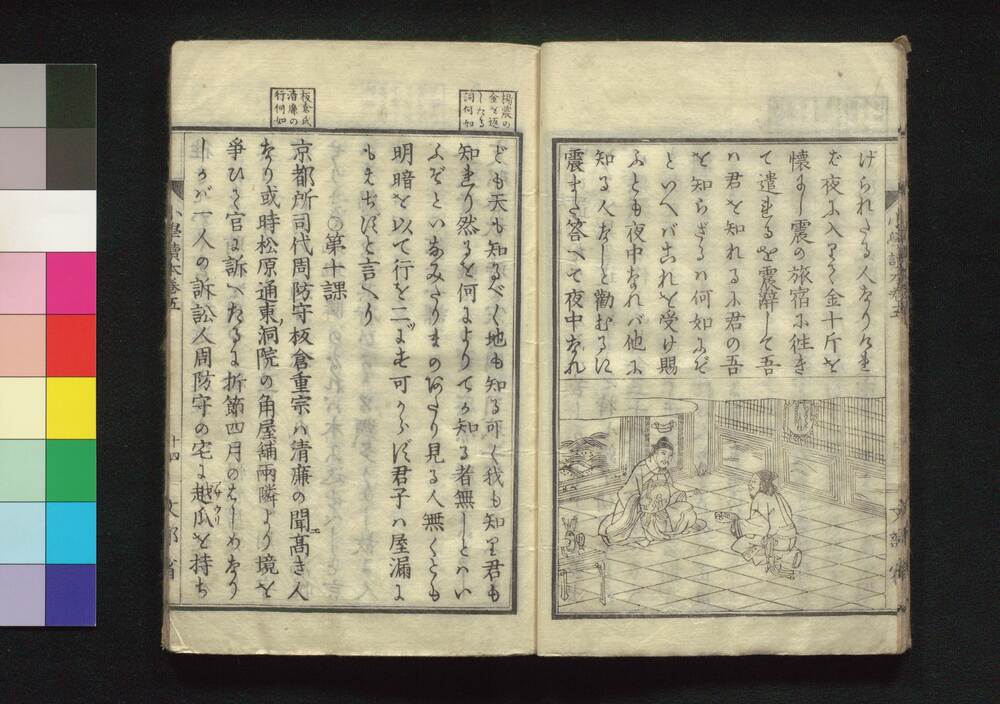 けられたる人なりけれ
ば夜に入りて金十斤を
懐にし震の旅宿に往き
て遣れるを震辭して吾
ハ君を知れるに君の吾
を知らざるハ何如にぞ
といへバこれを受け賜
ふとも夜中なれバ他に
知る人なしと勸むるに
震また答へて夜中なれ
楊震の
金を返
したる
詞何如
ども天も知るべく地も知る可く我も知り君も
知れり然るを何によりてか知る者無しとハい
ふぞといなみたりまのあたり見る人無くとも
明暗を以て行を二にす可からず君子ハ屋漏に
もはぢずと言へり
○第十課
板倉氏
清廉の
行何如
京都所司代周防守板倉重宗ハ清廉の聞高き人
なり或時松原通東洞院の角屋舗兩隣より境を
爭ひて官に訴へたるに折節四月のはじめなり
しかバ一人の訴訟人周防守の宅に越瓜を持ち
小學讀本卷五
十四
文部省